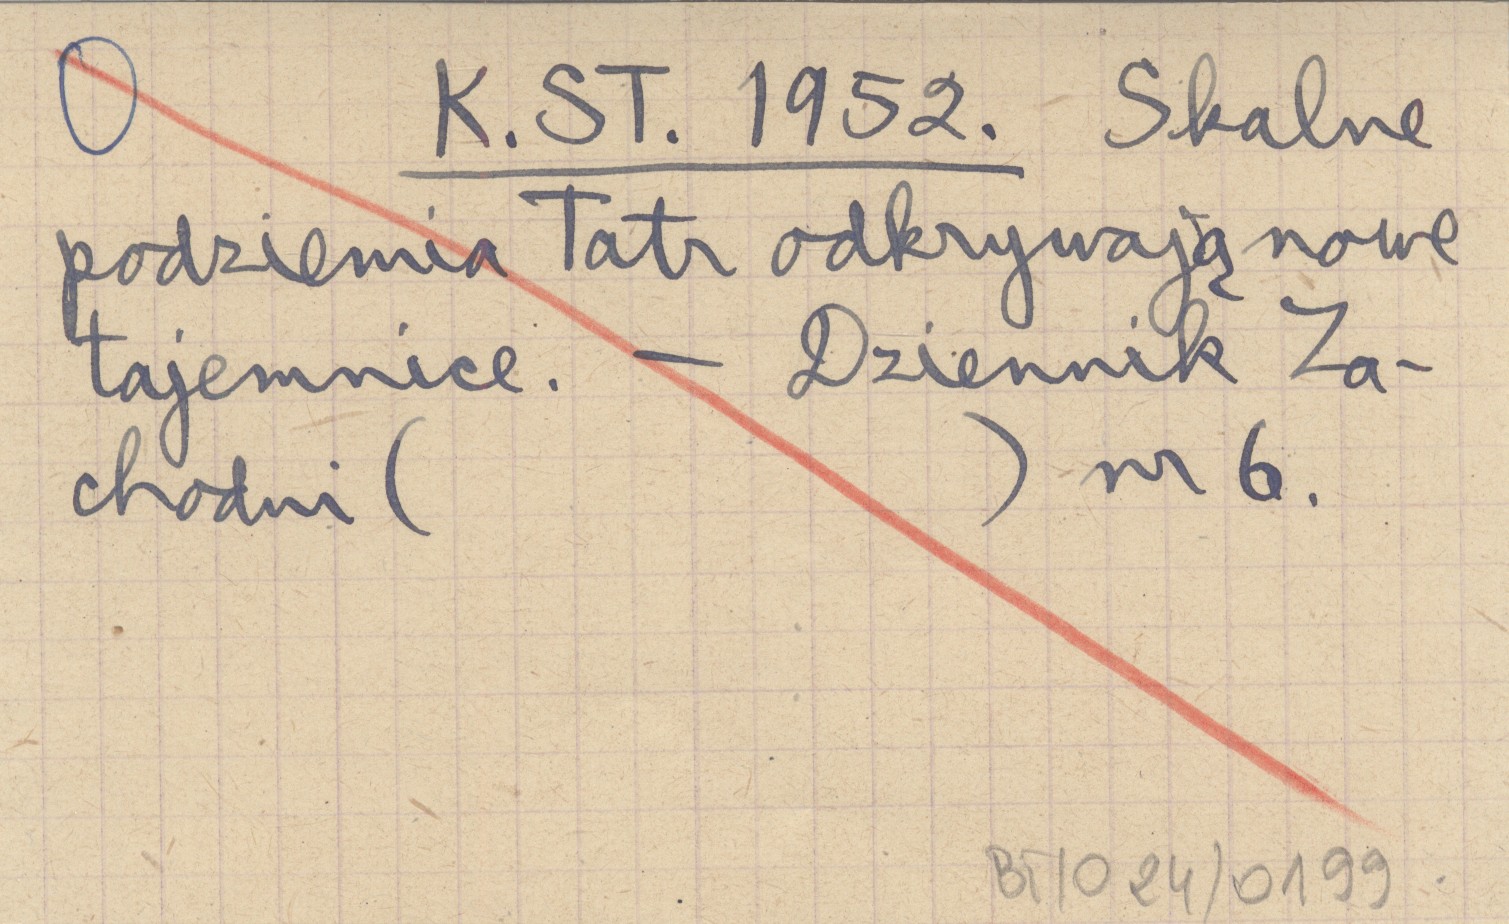 O K. ST. 1952. Skalne
podziemia Tatr odkrywają nowe
tajemnice. — Dziennik Za-
chodni ( ) nr 6.
BT/O 24/0199